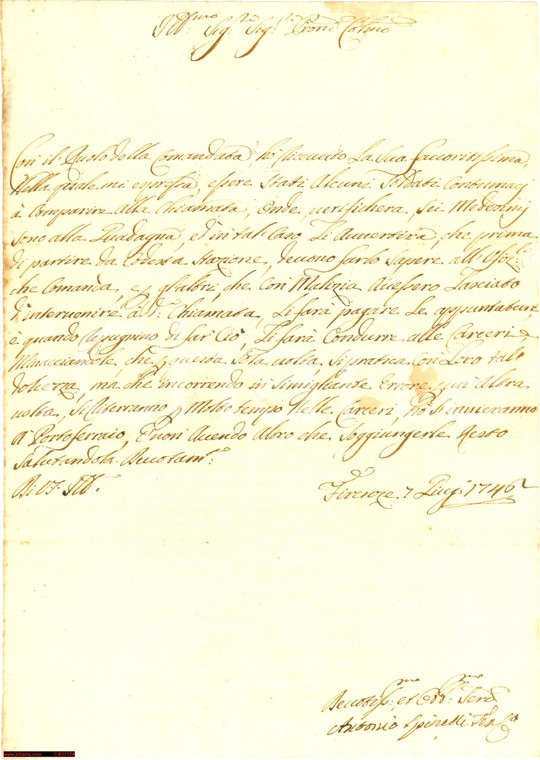 Ill.mo Sig.r Sig.r Pron Col.mo
Con il Ruolo della Comandata, ho ricevuto La Sua favoritissima,
Nella quale mi espressa, essere Stati Alcuni Soldati Contumaci
à Comparire alla Chiamata, Onde verificherà Sei Medesimi
sono alla Guadagna, ed in tal Caso Li Avvertirà, che prima
di partire da Codessa Stazione, devono farlo Sapere all'
che Comanda, e p gl'altri, che Con Malizia Avessero Lasciato
d'intervenire à d.a Chiamata, Li farà pagare Le appuntature
è quando repugnino di far Ciò, Li farà Condurre alle Carceri,
Minacciandole, che p questa Sola volta, Si pratica Con Loro tal
dolcezza, ma che incorrendo in Simigliante Errore, un Altra
volta, Si Aterranno p Molto tempo Nelle Carceri,
A Portoferraio, E non Avendo Altro che Soggiungerle Resto
Salutandola Devotam.te
Di VS. Ill.
Firenze 7 1746
Devotiss.mo et Obb.mo Serv.
Antonio Spinelli